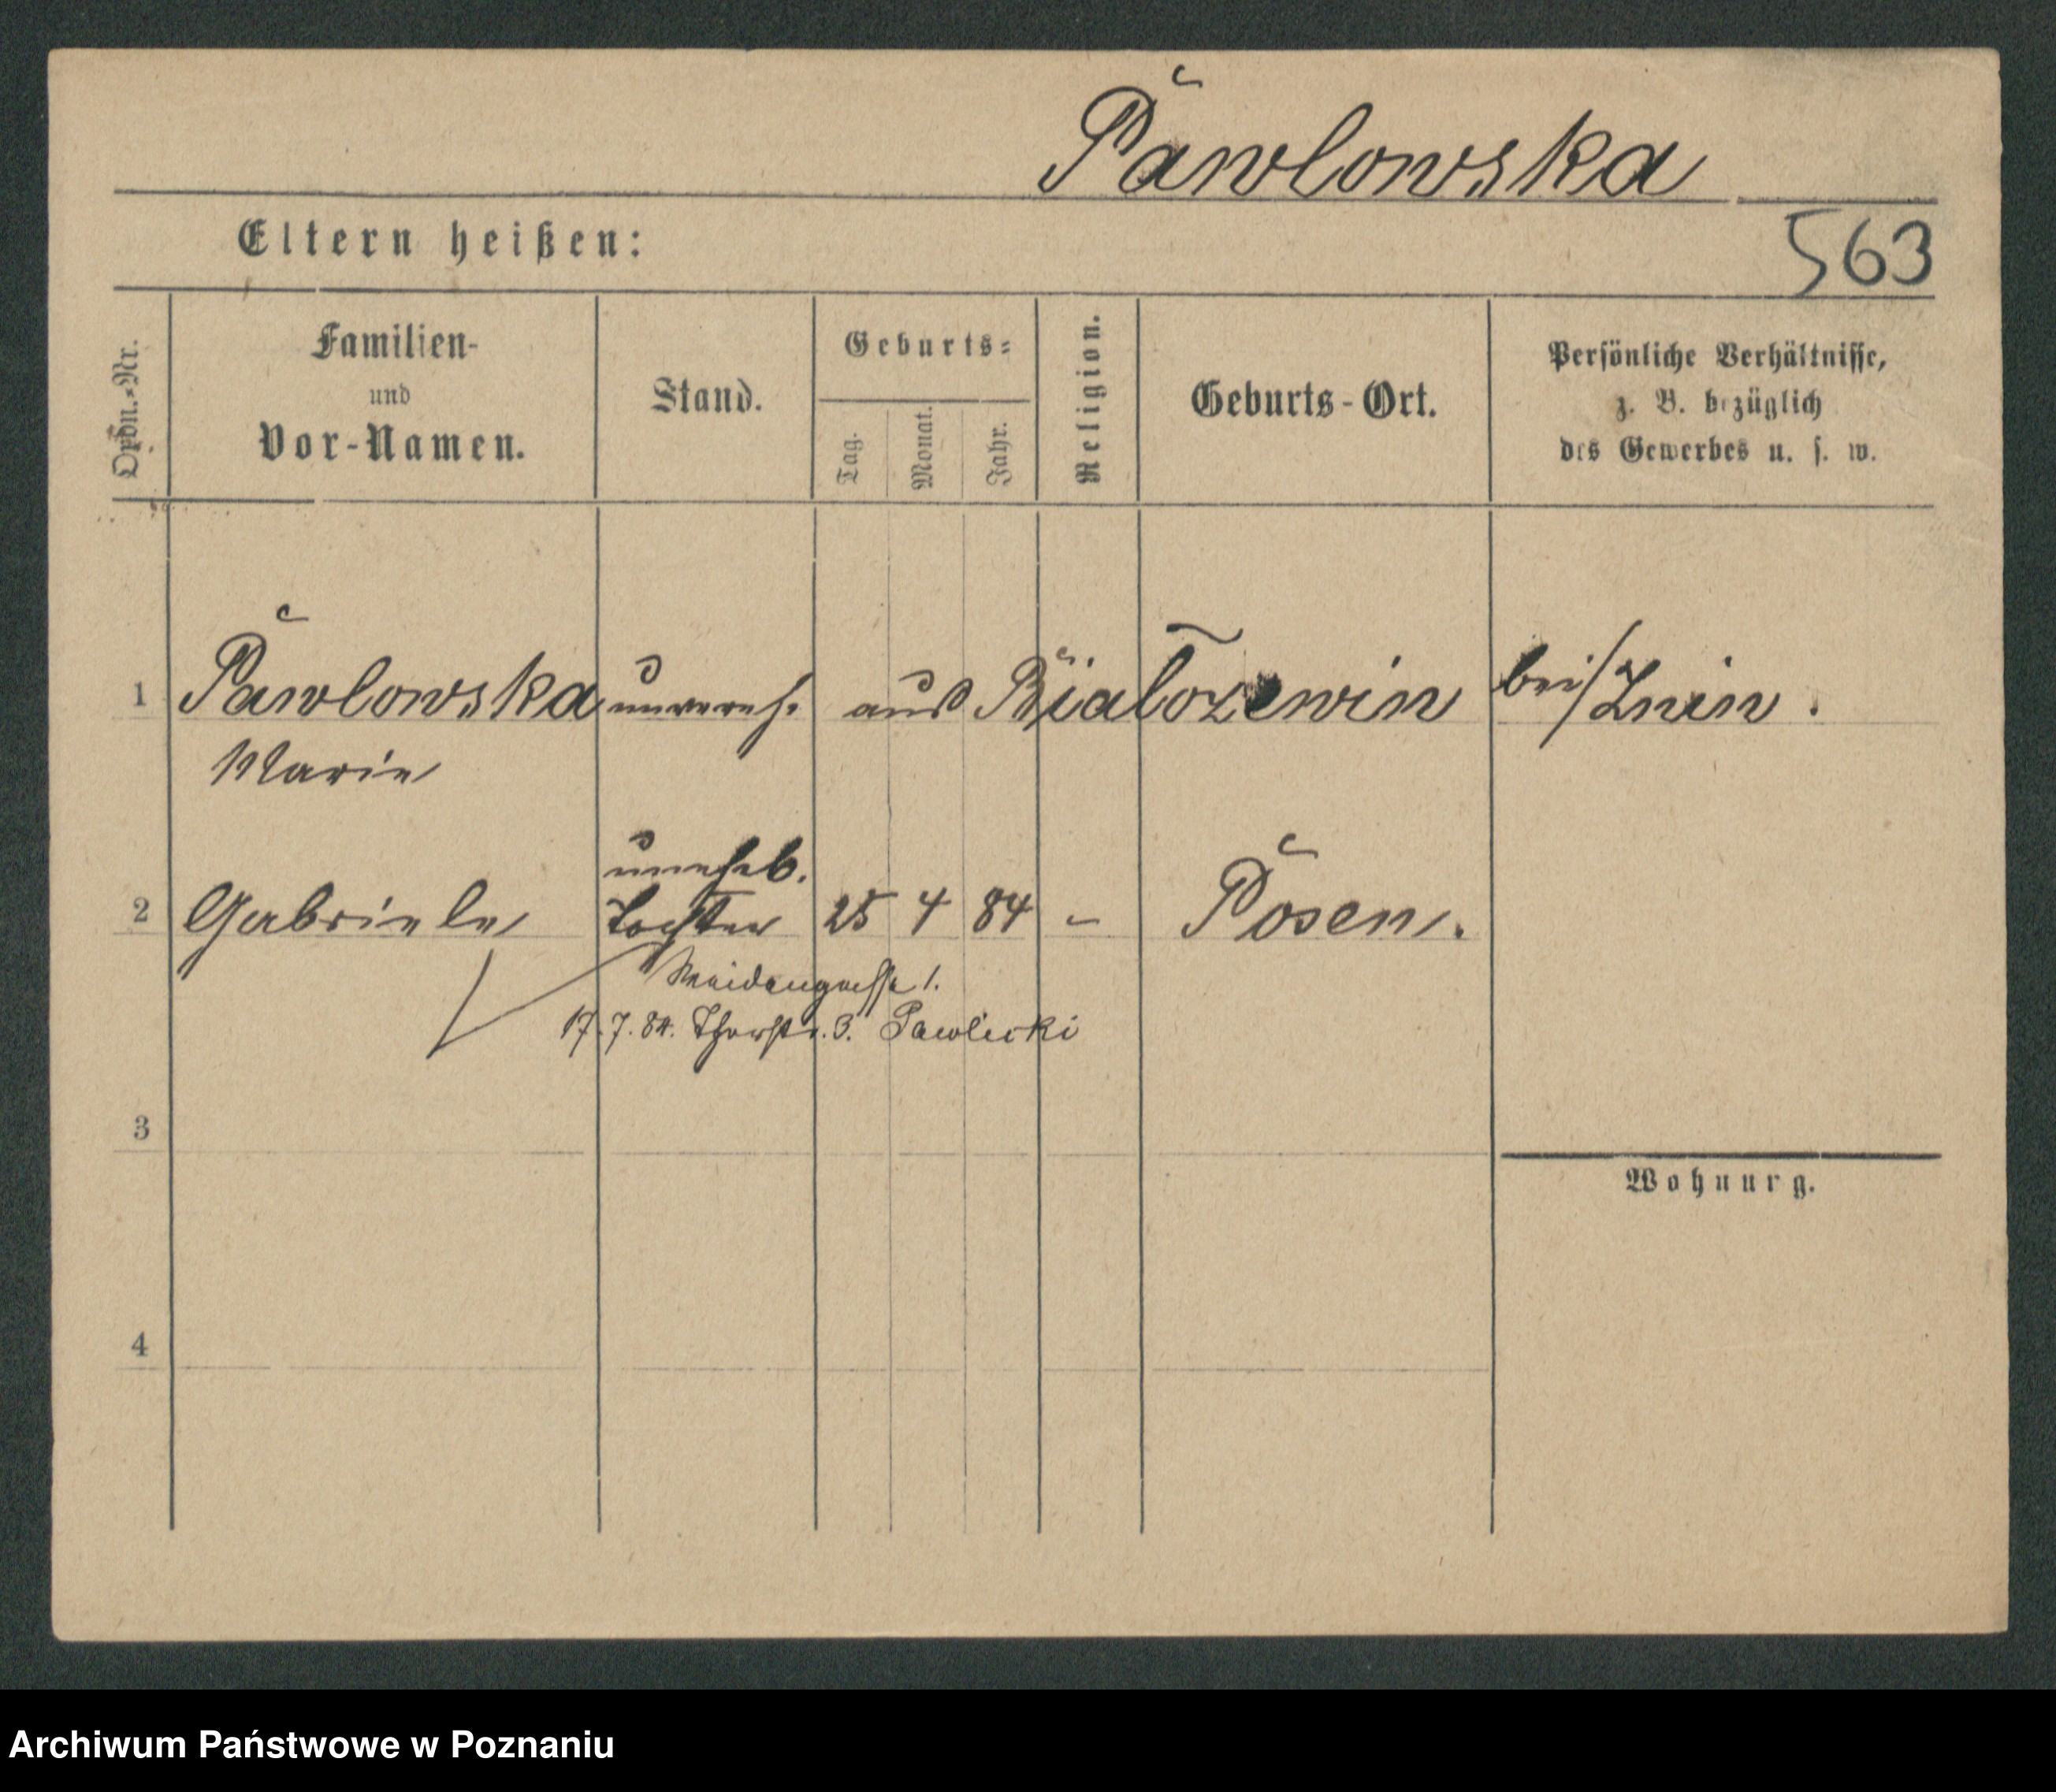 Pawlowska
Eltern heißen:
563
Ordn.-Nr.
Familien-
und
Vor-Namen.
Stand.
Geburts-
Tag.
Monat.
Jahr.
Religion.
Geburts-Ort.
Persönliche Verhältnisse,
z. B. bezüglich
des Gewerbes u. s. w.
1 Pawlowska unvereh. aus Bialozewin bei/Znin.
Marie
unehel.
2 Gabriele Tochter 25 4 84 - Posen.
1.
17.7.84. Thorstr. 3. Pawlicki
3
Wohnurg.
4
Archiwum Państwowe w Poznaniu